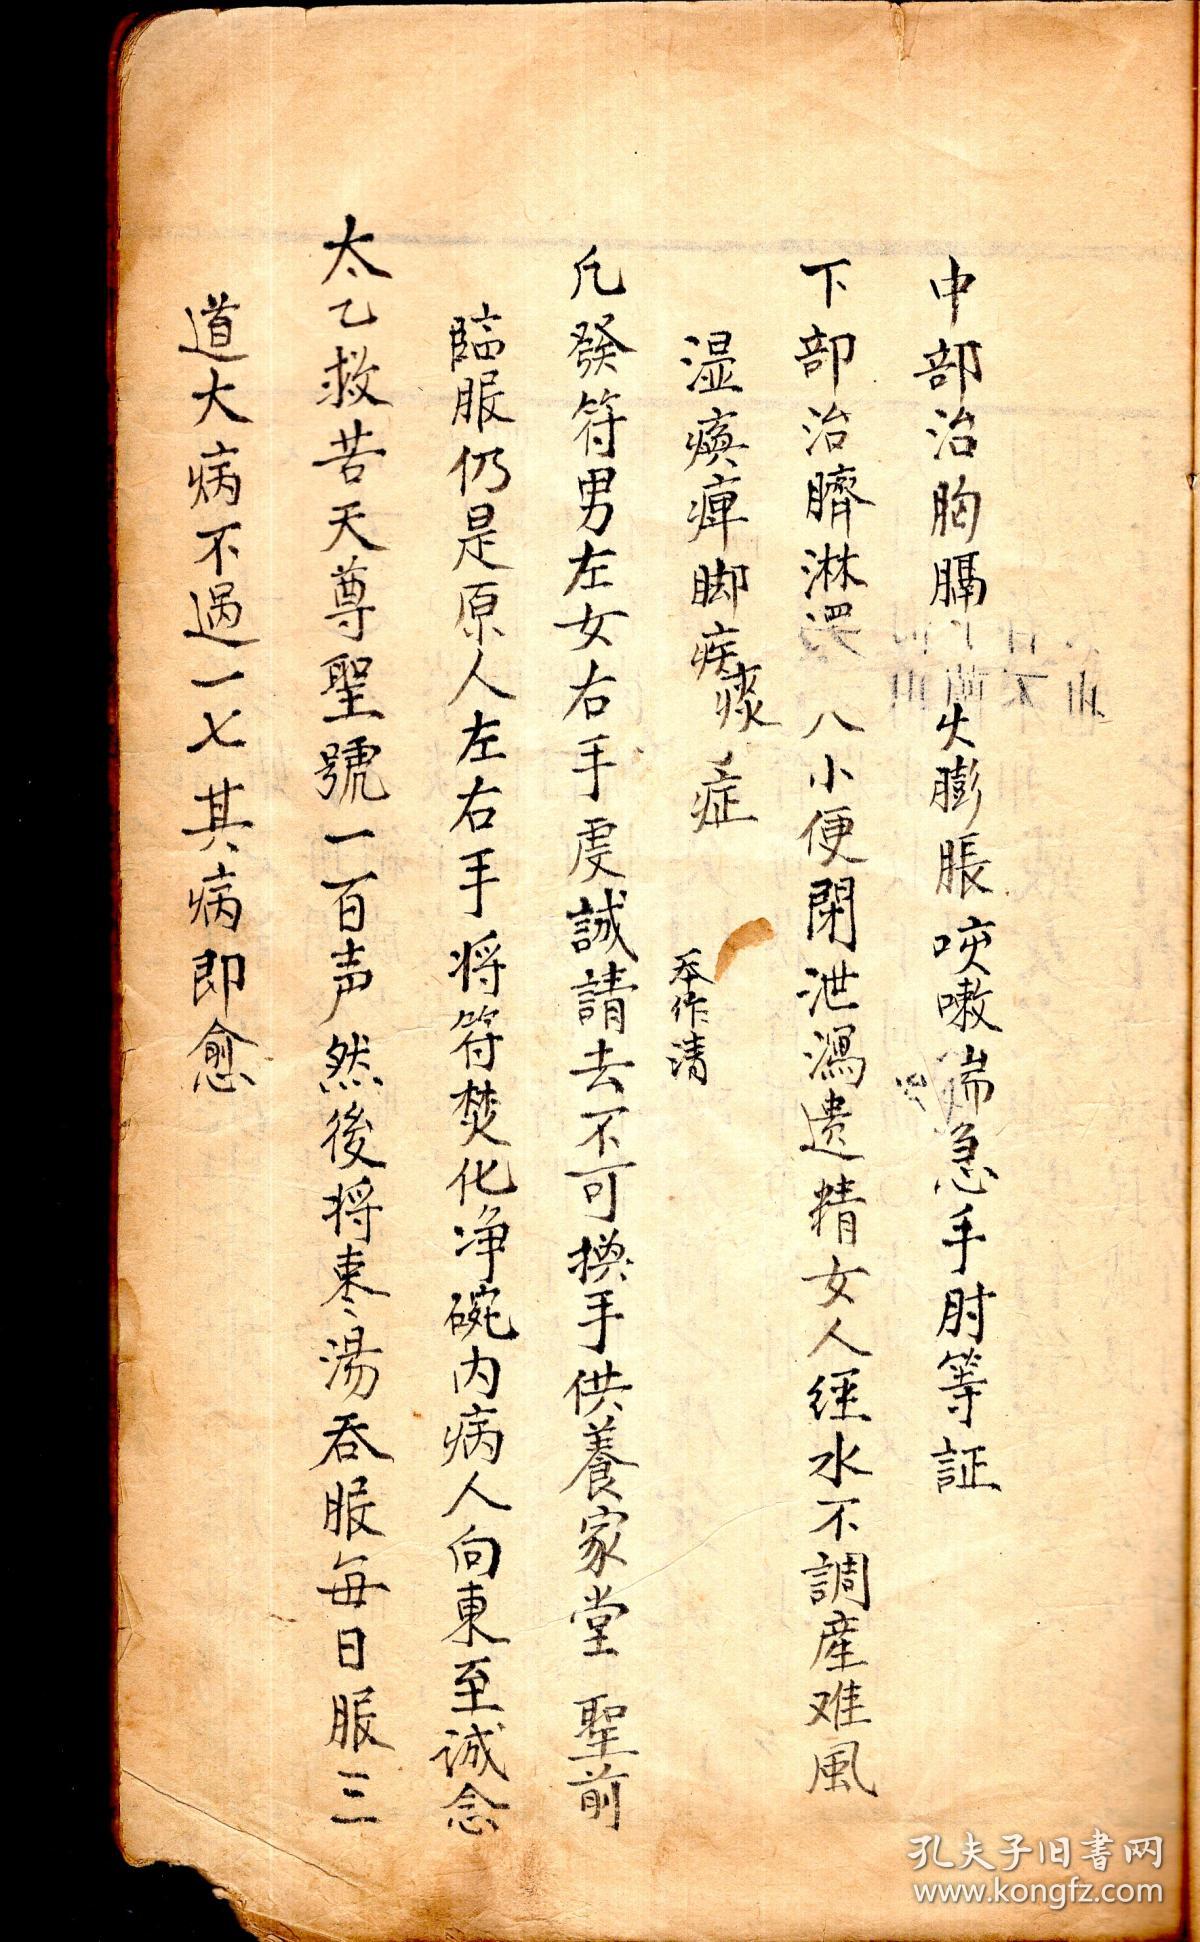 中部治胸膈火膨脹咳嗽喘急手肘等証
下部治臍淋八小便閉泄瀉遗精女人经水不調産难風
湿痪痺脚疾痰症
夲作清
凢發符男左女右手虔誠請去不可換手供養家堂 聖前
臨服仍是原人左右手将符焚化净碗内病人向東至诚念
太乙救苦天尊聖號一百声然後将枣湯吞服每日服三
道大病不過一七其病即愈
孔夫子旧書网
www.kongfz.com